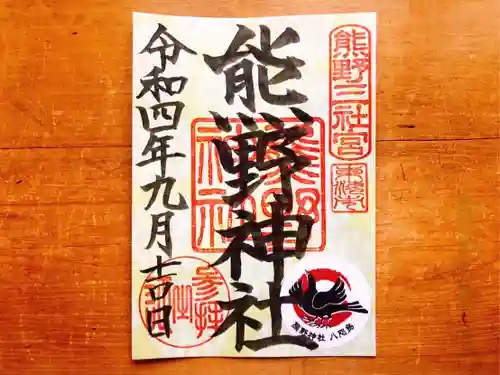 熊野三社宮
熊野神社
熊野神社
令和四年九月十一日
参拝
熊野神社 八咫烏